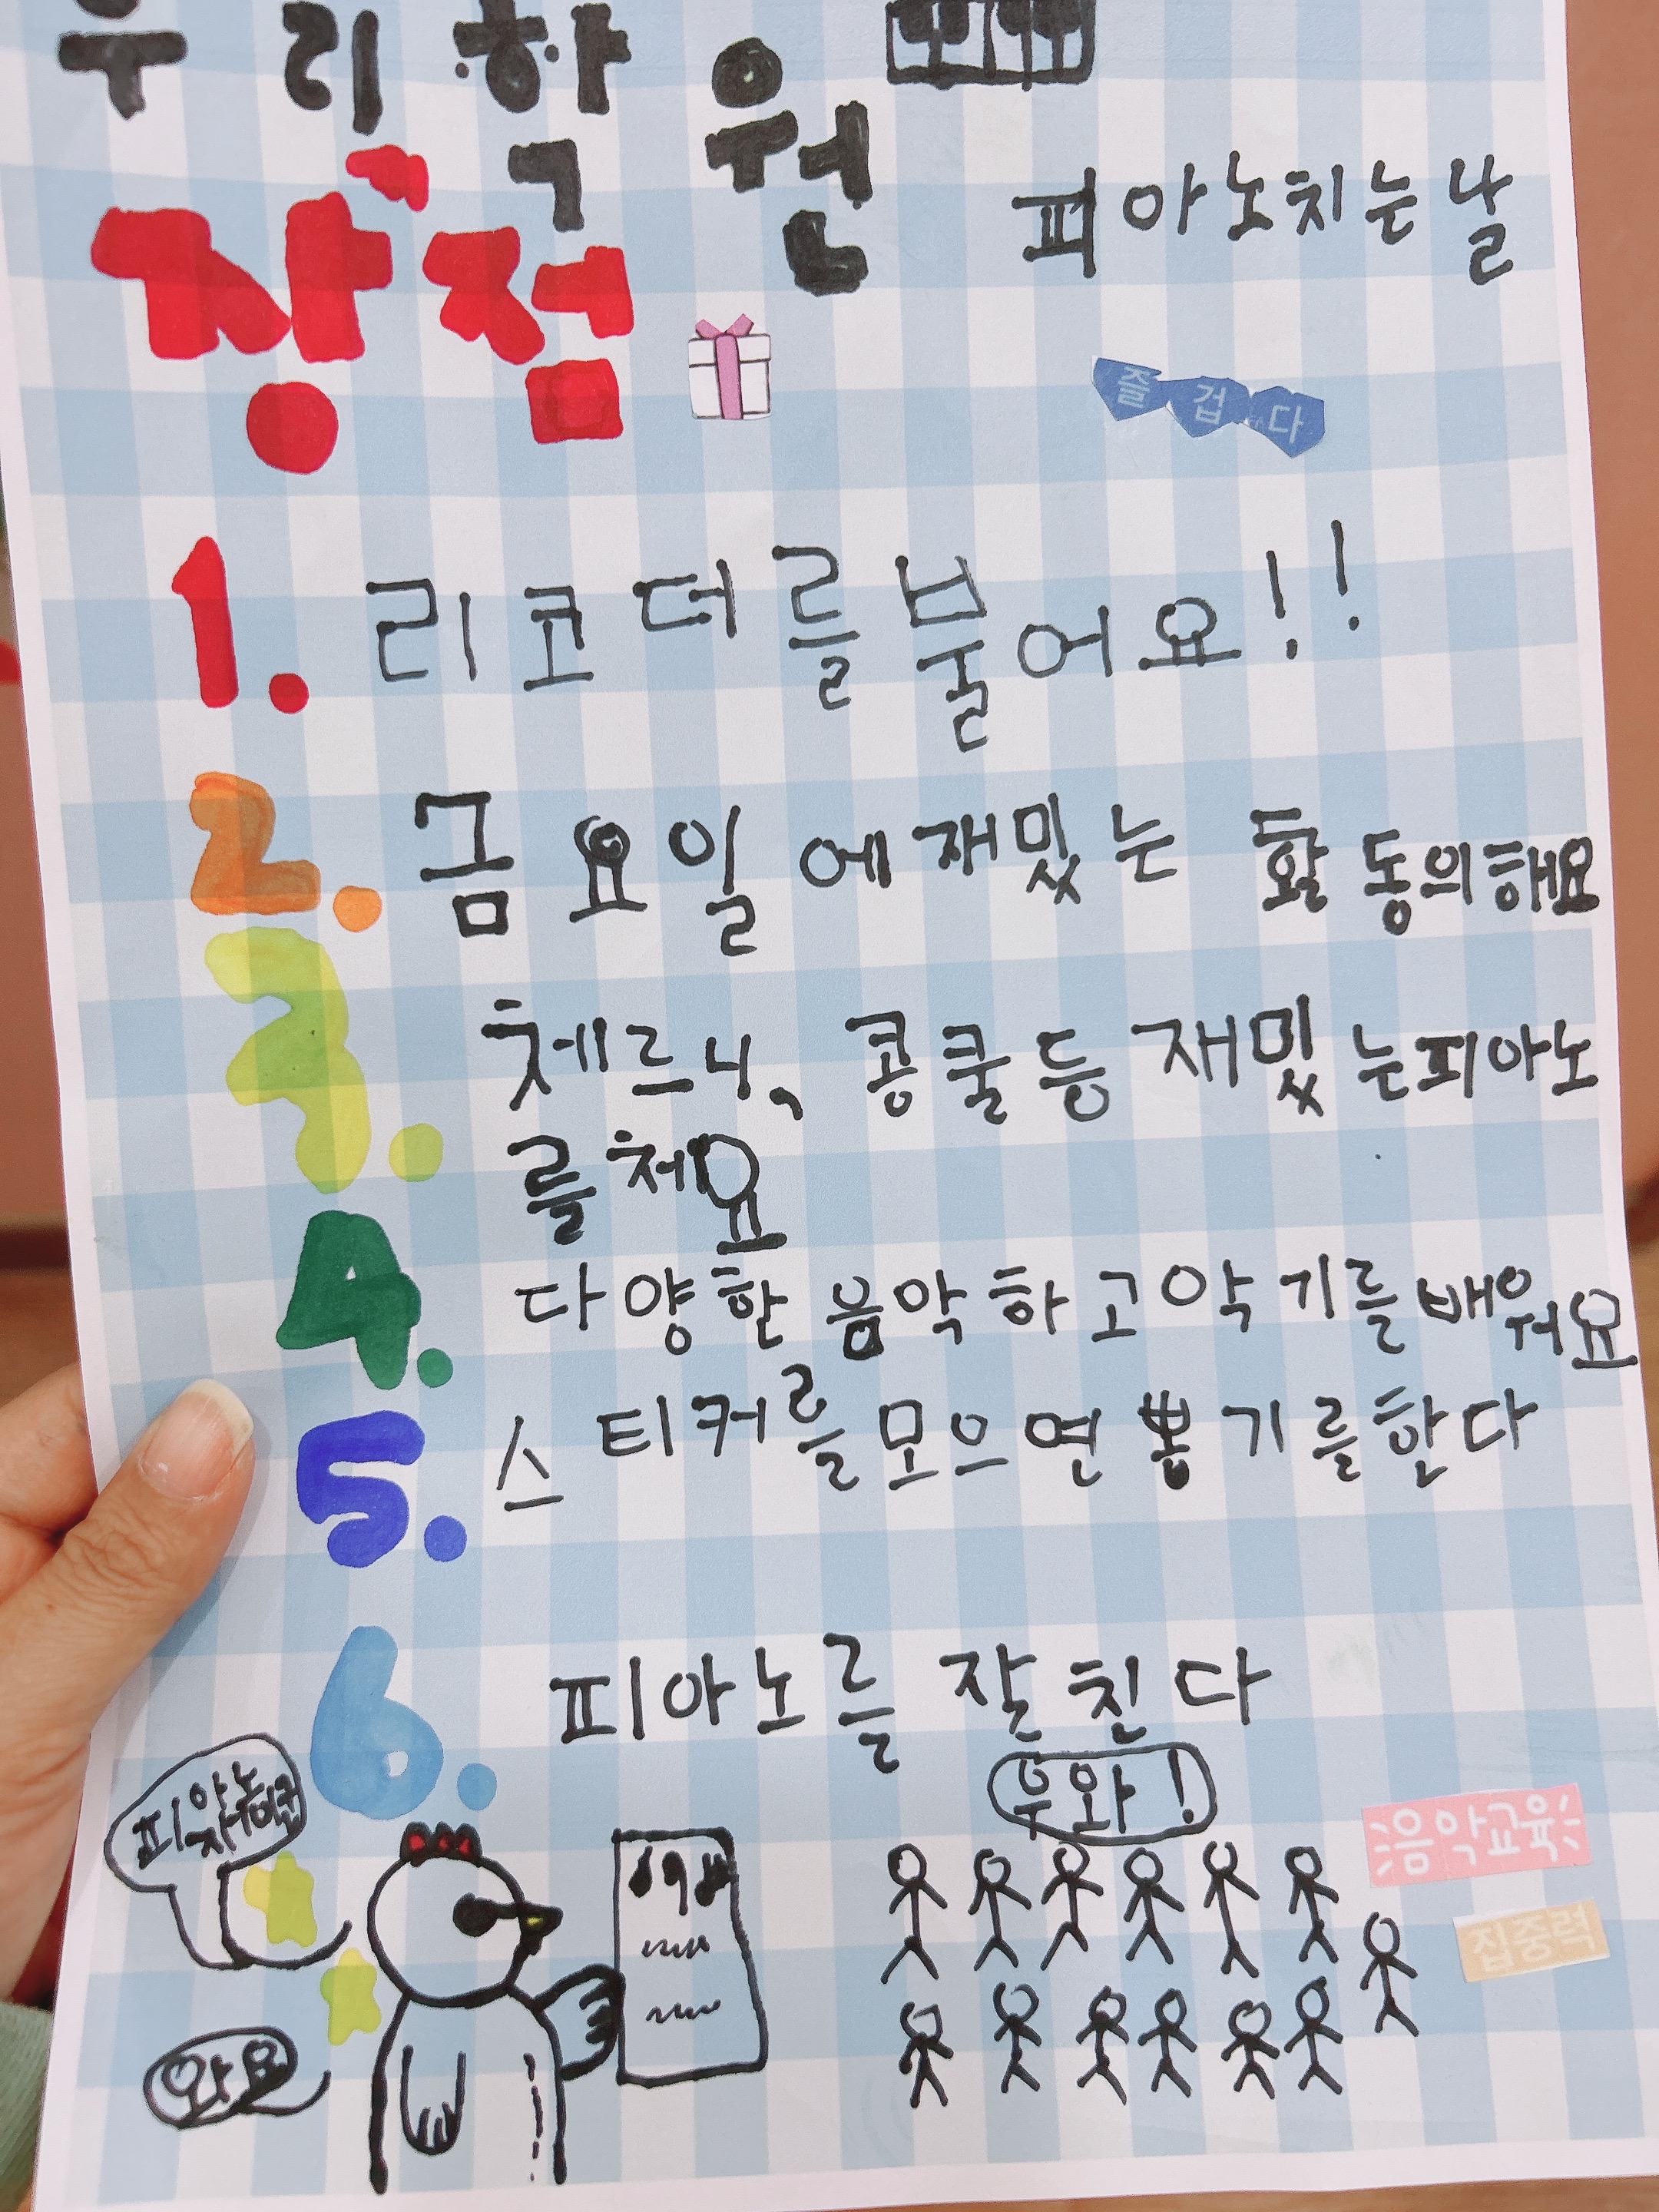 우리학원
장점
피아노치는날
즐겁다
1. 리코더를 불어요!!
2. 금요일에 재밌는 활동의해요
3. 체르니, 콩쿨등 재밌는피아노
를쳬요
4. 다양한 음악하고악기를배워요
5. 스티커를모으면 뽑기를한다
6. 피아노를 잘친다
우와!
음악교육
집중력
와요